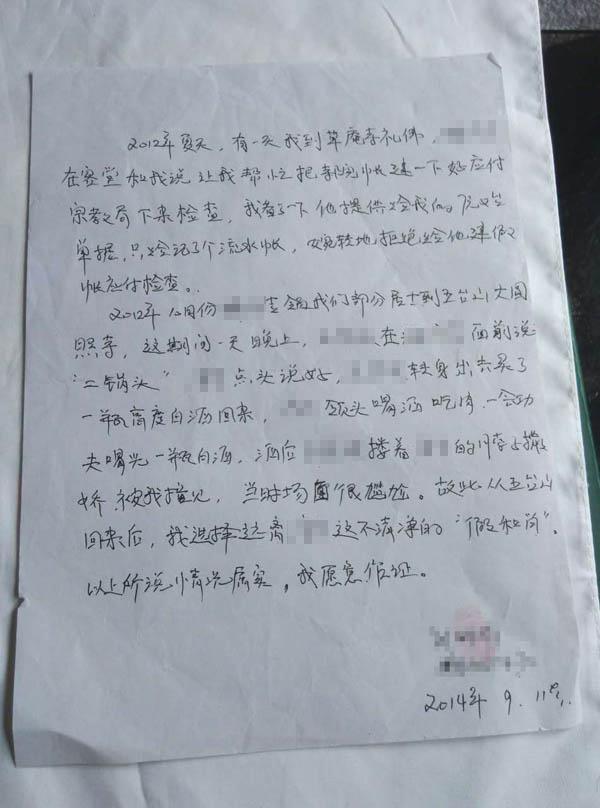 2012年夏天，有一天我到草庵寺礼佛，
在客堂和我说让我帮忙把寺院帐建一下好应付
宗教局下来检查，我看了一下他提供给我们
单据，只给记了个流水帐，婉转地拒绝给他建假
帐应付检查。
2012年 月份 我们部分居士到五台山大圆
照寺，这期间一天晚上， 在 面前说
“二锅头” 点头说好， 转身出去买了
一瓶高度白酒回来， 领头喝酒吃肉，一会功
夫喝光一瓶白酒，酒后 搂着 的脖子撒
娇被我撞见，当时场面很尴尬。故此从五台山
回来后，我选择远离 这不清净的“假和尚”。
以上所说情况属实，我愿意作证。
2014年 9. 11号.